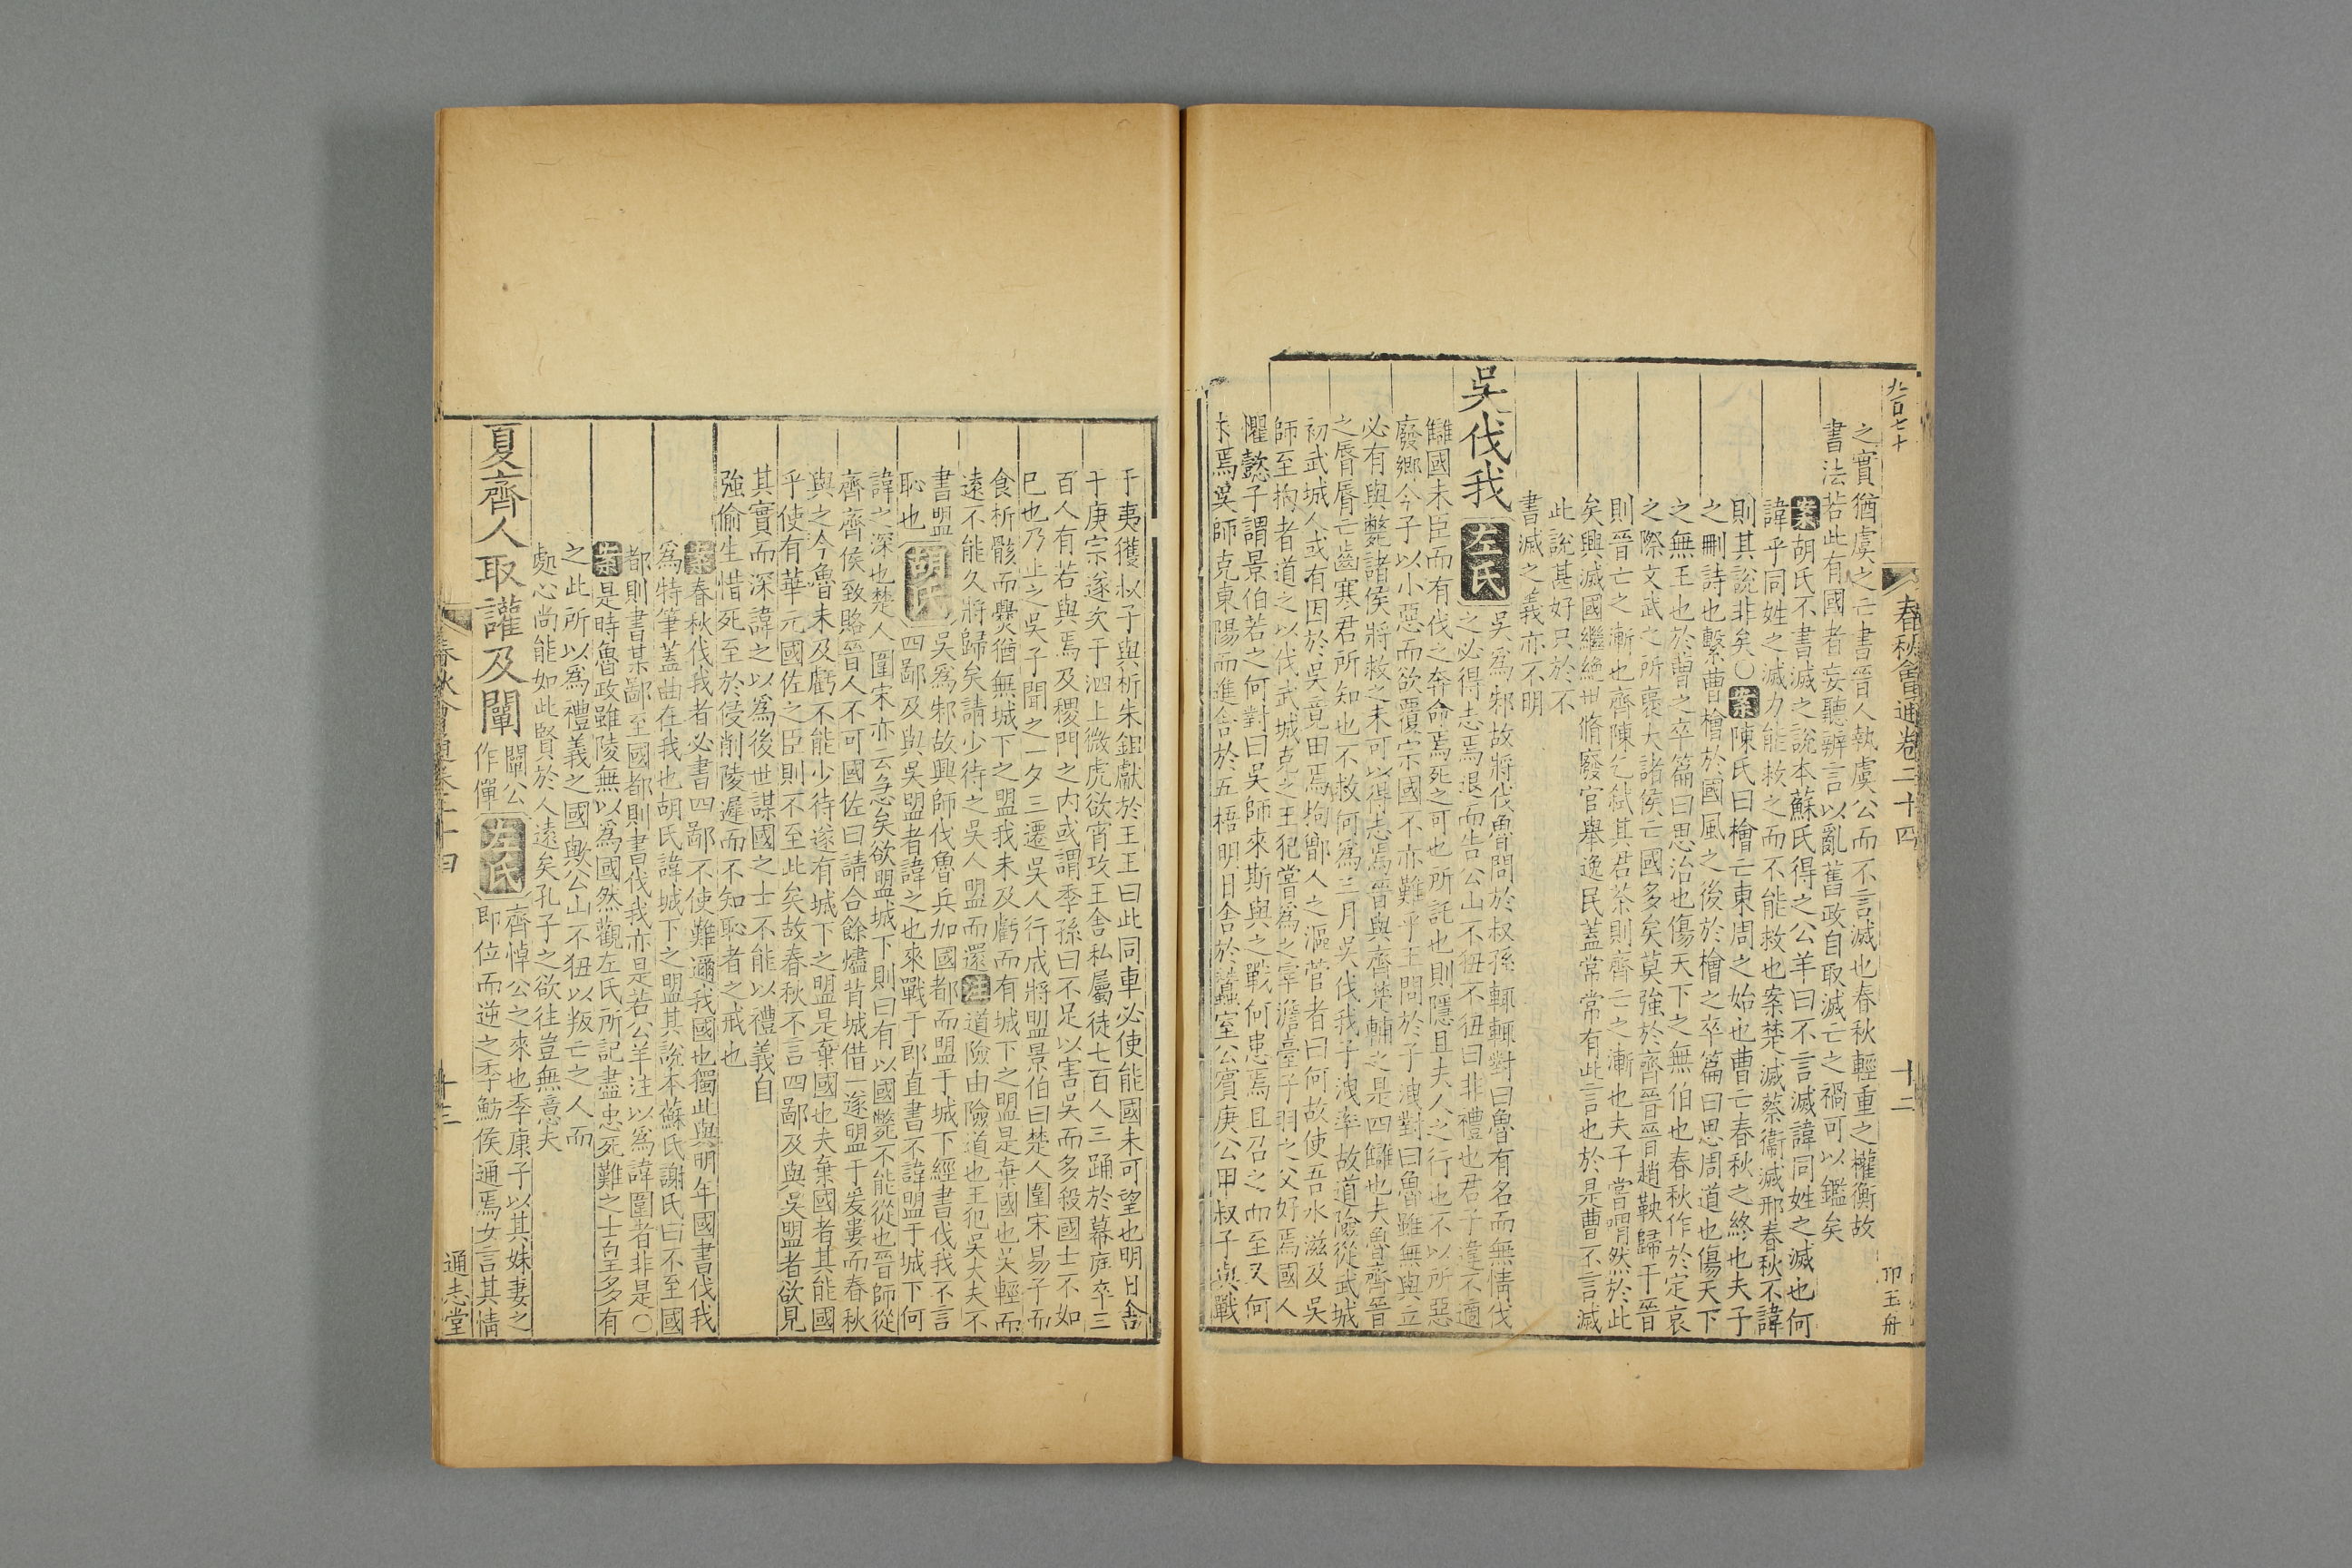 九百七十
春秋會通卷二十四
十二
之實猶虞之亡書晉人執虞公而不言滅也春秋輕重之權衡故
書法若此有國者妄聽辨言以亂舊政自取滅亡之禍可以鑑矣
案胡氏不書滅之說本蘇氏得之公羊曰不言滅諱同姓之滅也何
諱乎同姓之滅力能救之而不能救也案楚滅蔡衞滅邢春秋不諱
則其說非矣○案陳氏曰檜亡東周之始也曹亡春秋之終也夫子
之刪詩也繫曹檜於國風之後於檜之卒篇曰思周道也傷天下
之無王也於曹之卒篇曰思治也傷天下之無伯也春秋作於定哀
之際文武之所褒大諸侯亡國多矣莫強於齊晉晉趙鞅歸于晉
則晉亡之漸也齊陳乞弒其君荼則齊亡之漸也夫子當喟然於此
矣興滅國繼絶世脩廢官舉逸民蓋常常有此言也於是曹不言滅
此說甚好只於不
書滅之義亦不明
吳伐我
左氏
吳爲邾故將伐魯問於叔孫輒輒對曰魯有名而無情伐
之必得志焉退而告公山不狃不狃曰非禮也君子違不適
讎國未臣而有伐之奔命焉死之可也所託也則隱且夫人之行也不以所惡
廢鄉今子以小惡而欲覆宗國不亦難乎王問於子洩對曰魯雖無與立
必有與斃諸侯將救之未可以得志焉晉與齊楚輔之是四讎也夫魯齊晉
之脣脣亡齒寒君所知也不救何爲三月吳伐我子洩率故道險從武城
初武城人或有因於吳竟田焉拘鄫人之漚菅者曰何故使吾水滋及吳
師至拘者道之以伐武城克之王犯嘗爲之宰澹臺子羽之父好焉國人
懼懿子謂景伯若之何對曰吳師來斯與之戰何患焉且召之而至又何
求焉吳師克東陽而進舍於五梧明日舍於蠶室公賓庚公甲叔子與戰
于夷獲叔子與析朱鉏獻於王王曰此同車必使能國未可望也明日舍
于庚宗遂次于泗上微虎欲宵攻王舍私屬徒七百人三踊於幕庭卒三
百人有若與焉及稷門之内或謂季孫曰不足以害吳而多殺國士不如
已也乃止之吳子聞之一夕三遷吳人行成將盟景伯曰楚人圍宋易子而
食析骸而爨猶無城下之盟我未及虧而有城下之盟是棄國也吳輕而
遠不能久將歸矣請少待之吳人盟而還注道險由險道也王犯吳大夫不
書盟
恥也
胡氏
吳爲邾故興師伐魯兵加國都而盟于城下經書伐我不言
四鄙及與吳盟者諱之也來戰于郎直書不諱盟于城下何
諱之深也楚人圍宋亦云急矣欲盟城下則曰有以國斃不能從也晉師從
齊齊侯致賂晉人不可國佐曰請合餘燼背城借一遂盟于爰婁而春秋
與之今魯未及虧不能少待遂有城下之盟是棄國也夫棄國者其能國
乎使有華元國佐之臣則不至此矣故春秋不言四鄙及與吳盟者欲見
其實而深諱之以爲後世謀國之士不能以禮義自
強偷生惜死至於侵削陵遲而不知恥者之戒也
案春秋伐我者必書四鄙不使難邇我國也獨此與明年國書伐我
爲特筆蓋曲在我也胡氏諱城下之盟其說本蘇氏謝氏曰不至國
都則書某鄙至國都則書伐我亦是若公羊注以爲諱圍者非是○
案是時魯政雖陵無以爲國然觀左氏所記盡忠死難之士皇多有
之此所以爲禮義之國歟公山不狃以叛亡之人而
處心尚能如此賢於人遠矣孔子之欲往豈無意夫
夏齊人取讙及闡
闡公
作僤
左氏
齊悼公之來也季康子以其妹妻之
即位而逆之季魴侯通焉女言其情
春秋會通卷二十四
十三
通志堂